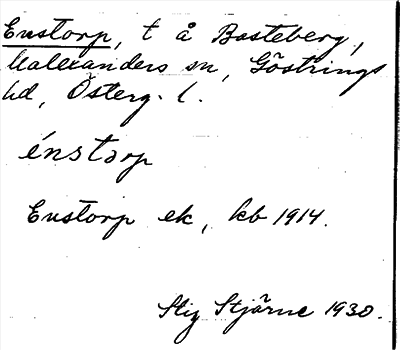 Enstorp, t å Basteberg,
Valexanders sn, Göstrings
hd, Österg. l.
énstərp
Enstorp ek, kb 1914.
Stig Stjärne 1930.